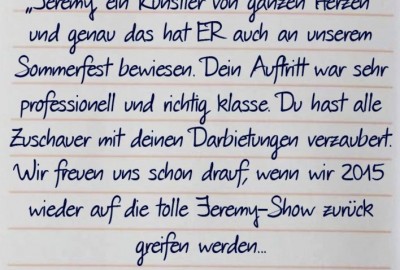 „Jeremy, ein Künstler von ganzen Herzen
und genau das hat ER auch an unserem
Sommerfest bewiesen. Dein Auftritt war sehr
professionell und richtig klasse. Du hast alle
Zuschauer mit deinen Darbietungen verzaubert.
Wir freuen uns schon drauf, wenn wir 2015
wieder auf die tolle Jeremy-Show zurück
greifen werden...